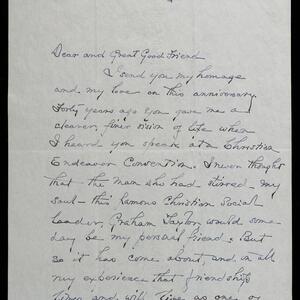 Dear and Great Good Friend
I send you my homage
and my love on this anniversary
Forty years ago you gave me a
clearer, finer vision of life when
I heard you speak at a Christian
Endeavor Convention. I never thought
that the man who had stirred my
soul - this famous Christian Social
leader, Graham Taylor, would some
day be my personal friend. But
so it has come about, and in all
my experience that friendship
lives and will live as one of